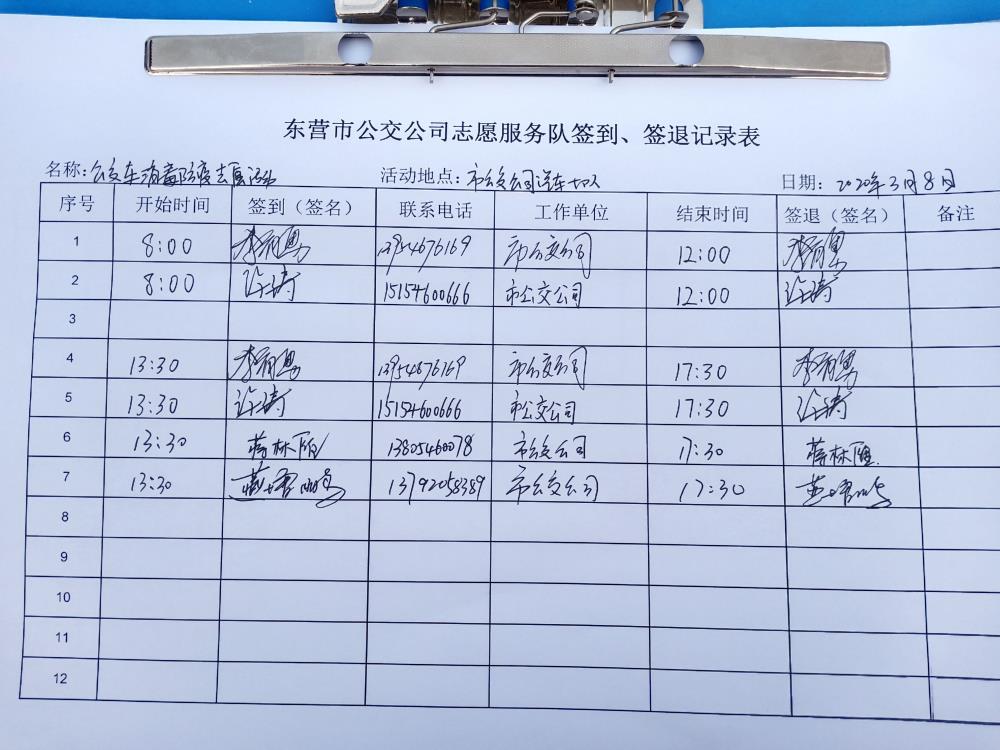 东营市公交公司志愿服务队签到、签退记录表
名称：公交车消毒防疫志愿活动 活动地点：市公交公司汽车 日期：2020年3月8日
序号 开始时间 签到（签名） 联系电话 工作单位 结束时间 签退（签名） 备注
1 8:00 13954676169 市公交公司 12:00
2 8:00 许涛 15154600666 市公交公司 12:00 许涛
3
4 13:30 13954676169 市公交公司 17:30
5 13:30 许涛 15154600666 市公交公司 17:30 许涛
6 13:30 蒋林 13805460078 市公交公司 17:30 蒋林
7 13:30 13792058389 市公交公司 17:30
8
9
10
11
12